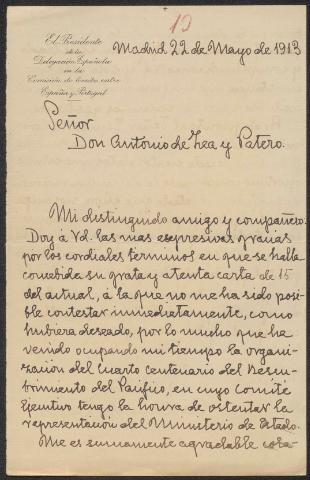 19
El Presidente
de la
Delegación Española
en la
Comisión de límites entre
España y Portugal
Madrid 22 de Mayo de 1913
Señor
Don Antonio de Zea y Patero.
Mi distinguido amigo y compañero.
Doy á Vd. las mas expresivas gracias
por los cordiales términos en que se halla
concebida su grata y atenta carta de 15
del actual, á la que no me ha sido posi-
ble contestar inmediatamente, como
hubiera deseado, por lo mucho que ha
venido ocupando mi tiempo la organi-
zación del cuarto centenario del Descu-
brimiento del Pacífico, en cuyo Comité
Ejecutivo tengo la honra de ostentar la
representación del Ministerio de Estado.
Me es sumamente agradable